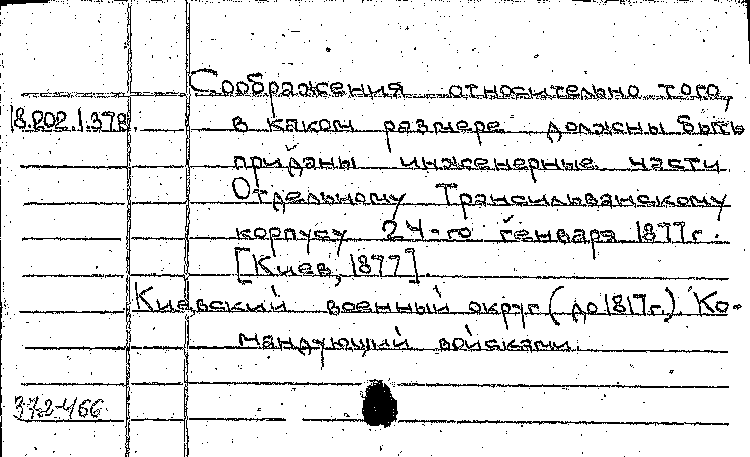 Соображения относительно того,
18.202.1.378. в каком размере должны быть
приданы инженерные части
Отдельному Трансильванскому
корпусу 24-го генваря 1877 г.
[Киев, 1877].
Киевский военный округ (до 1817г.). Ко-
мандующий войсками.
372-466